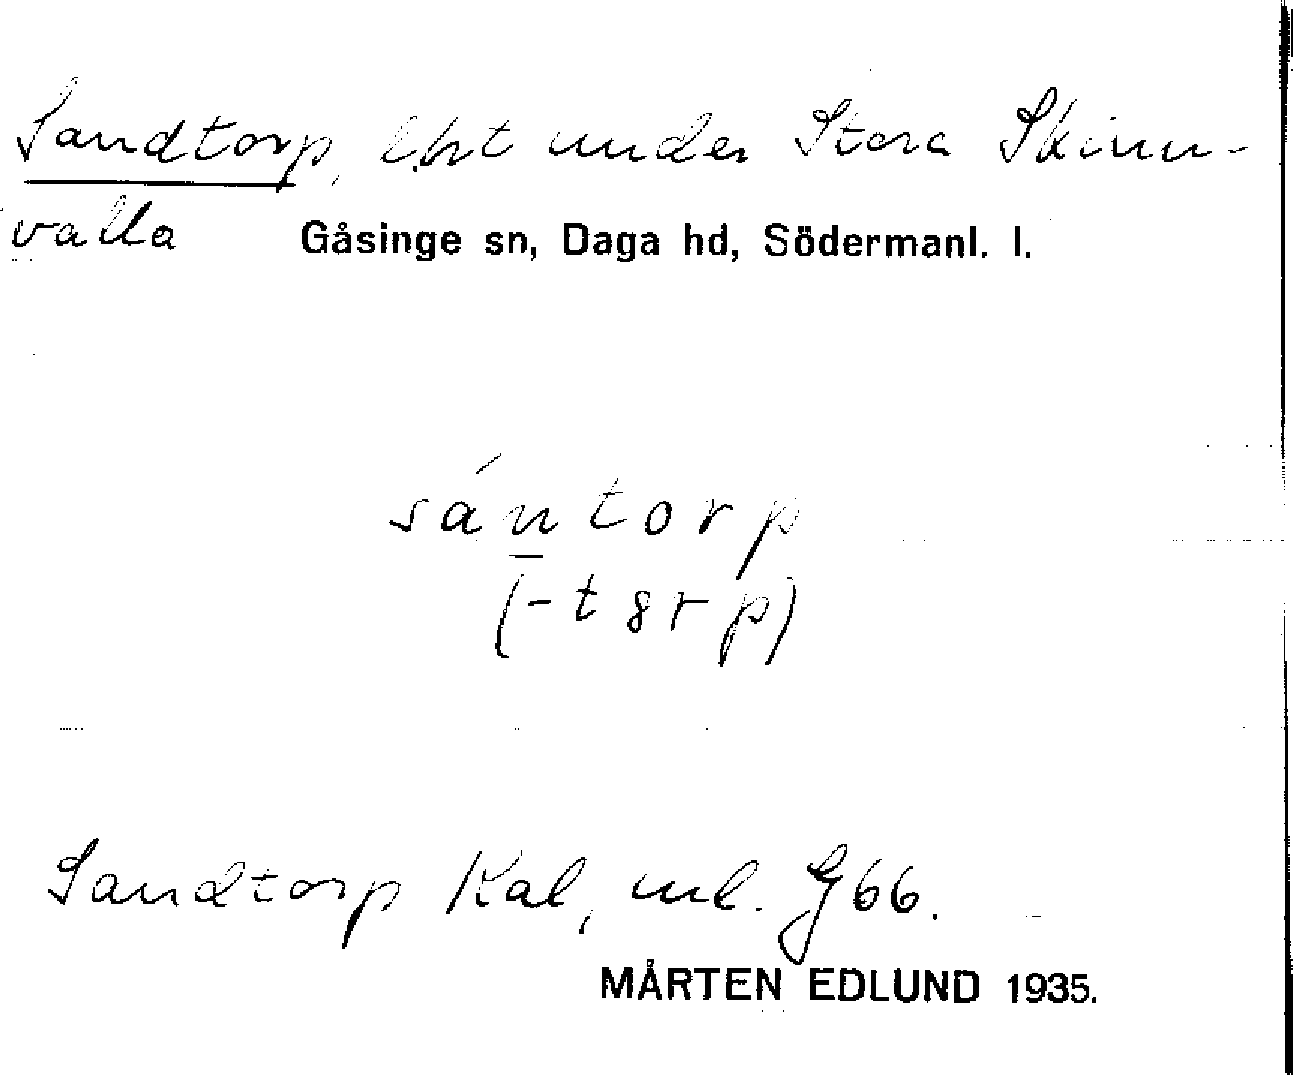 Sandtorp, lht under Stora Skinn-
valla Gåsinge sn, Daga hd, Södermanl. l.
sán̲torp
(-t8rp)
Sandtorp Kal, ml. G66.
MÅRTEN EDLUND 1935.